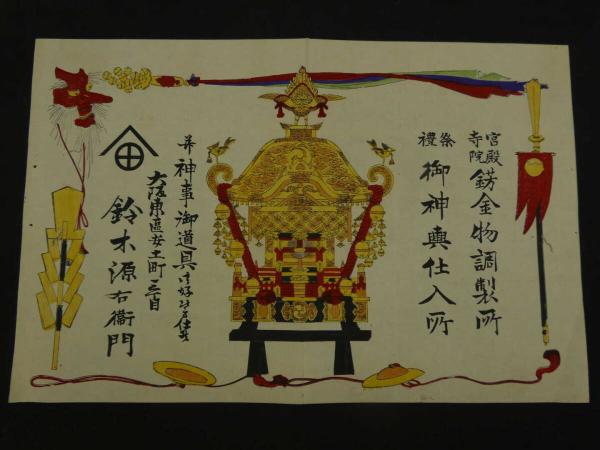 宮殿
寺院
錺金物調製所
祭禮
御神輿仕入所
並神事御道具
大阪東區安土町三丁目
田
鈴木源右衛門